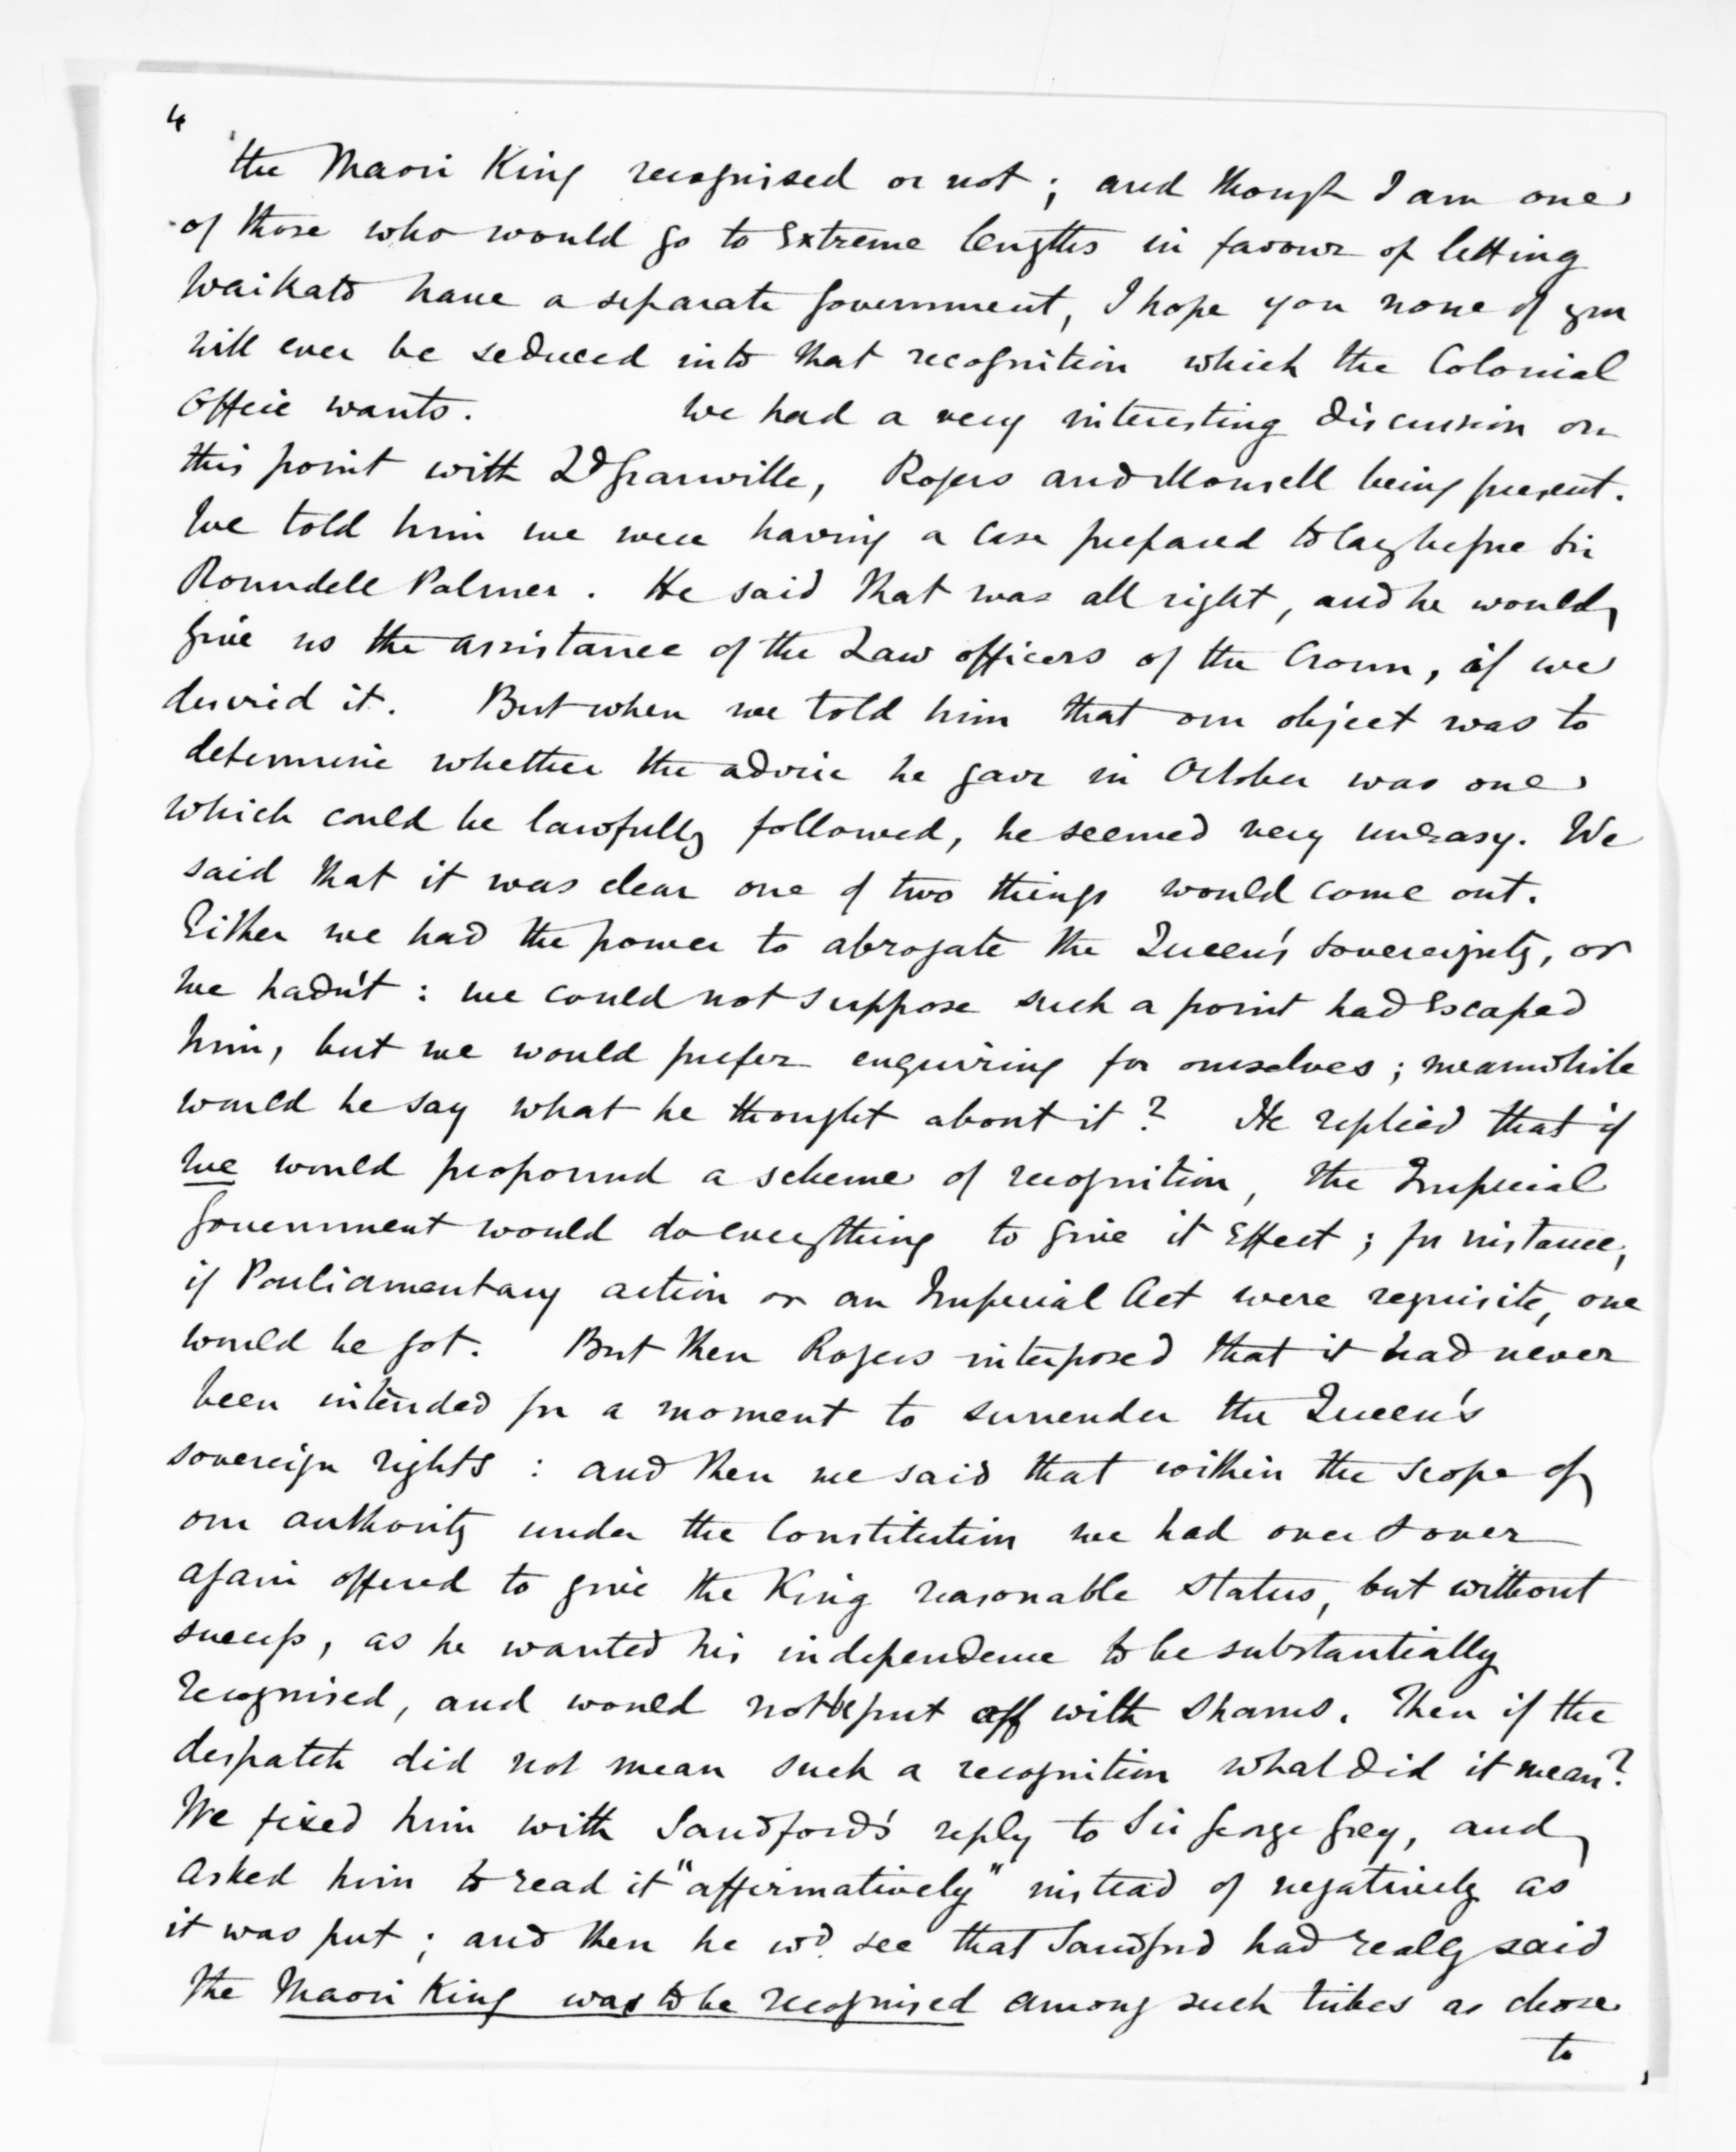 4
the Maori King recognised or not; and though I am one
of those who would go to Extreme lengths in favour of letting
Waikato have a separate Government, I hope you none of you
will ever be seduced into that recognition which the Colonial
Office wants. We had a very interesting discussion on
this point with Ld Granville, Rogers and Monsell being present.
We told him we were having a case prepared to lay before Sir
Roundell Palmer. He said that was all right, and he would
give us the assistance of the Law officers of the Crown, if we
desired it. But when we told him that our object was to
determine whether the advice he gave in October was one
which could be lawfully followed, he seemed very uneasy. We
said that it was clear one of two things would come out.
Either we had the power to abrogate the Queen's Sovereignty, or
we hadn't: we could not suppose such a point had Escaped
him, but we would prefer enquiring for ourselves; meanwhile
would he say what he thought about it? He replied that if
we would propound a scheme of recognition, the Imperial
Government would do everything to give it Effect; for instance,
if Parliamentary action or an Imperial Act were requisite, one
would be got. But then Rogers interposed that it had never
been intended for a moment to surrender the Queen's
sovereign rights: and then we said that within the scope of
our authority under the Constitution we had over & over
again offered to give the King reasonable status, but without
success, as he wanted his independence to be substantially
recognised, and would not be put off with shams. Then if the
despatch did not mean such a recognition what did it mean?
We fixed him with Sandford's reply to Sir George Grey, and
asked him to read it "affirmatively" instead of negatively as
it was put; and then he wd. see that Sandford had really said
the Maori King was to be recognised among such tribes as chose
to